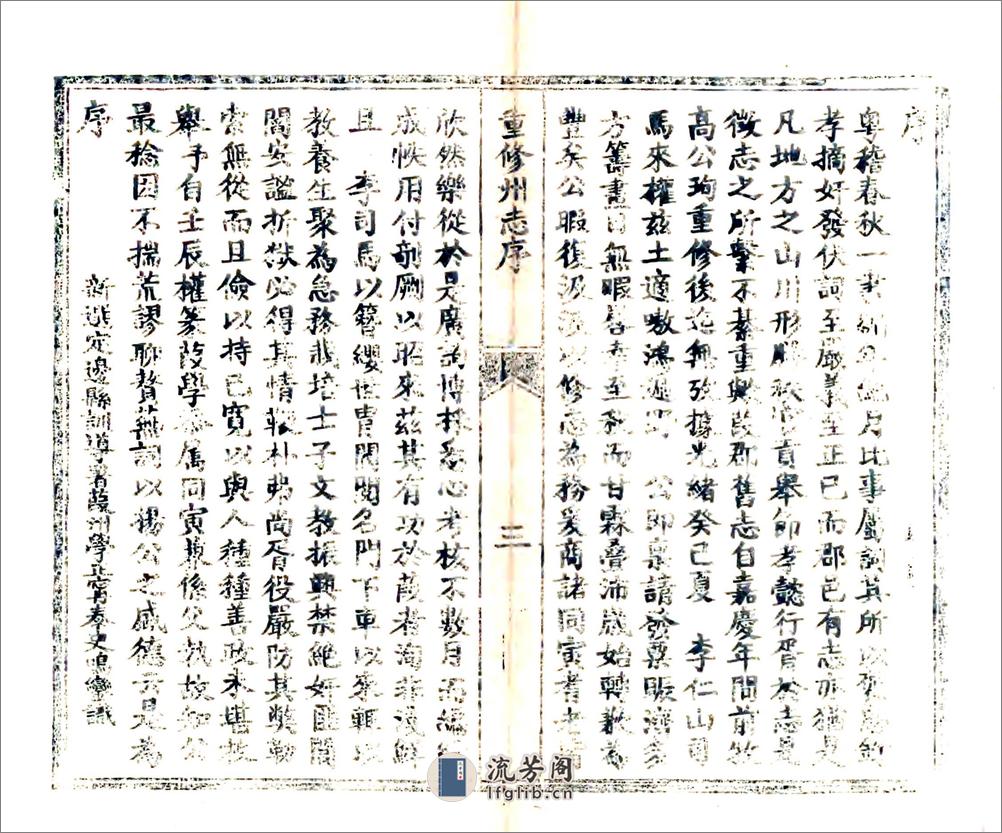 序
粵稽春秋一書編年紀月比事屬詞其所以
孝摘奸發伏詞至嚴義至正已而郡邑有志亦猶是
凡地方之山川形勝秋官貢舉節孝懿行胥於志是
徵志之所繫不綦重與葭郡舊志自嘉慶年間前牧
高公珣重修後迄無攷據光緒癸巳夏 李仁山司
馬來權茲土適嗷鴻遍野 公即稟請發粟賑濟多
方籌畫日無暇晷春至秋而甘霖疊沛歲始轉歉為
豐矣公暇復汲汲以修志為務爰商諸同寅耆老
重修州志序
三
欣然樂從於是廣詢博採悉心考核不數月而編
成帙用付剞劂以昭來茲其有功於葭者洵非淺鮮
且 李司馬以簪纓世冑閥閱名門下車以來輒以
教養生聚為急務哉培士子文教振興禁絕奸匪閭
閻安謐折獄必得其情鞭朴弗尚胥役嚴防其弊勒
索無從而且儉以持已寬以與人種種善政未堪枚
舉予自壬辰權篆葭學 屬同寅兼係父執故知公
最稔因不揣荒謬聊贅蕪詞以揚公之盛德云是為
序
新選定邊縣訓導署葭州學正 史鳴鑾識
流芳阁
lfglib.cn